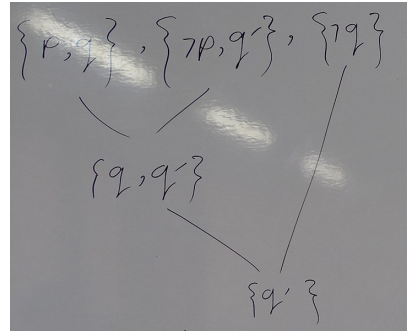 {p, q}, {¬p, q′}, {¬q}
{q, q′}
{q′}